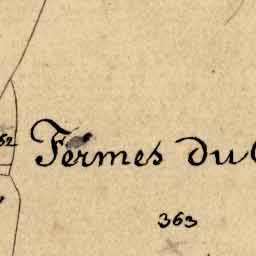 Fermes du
363